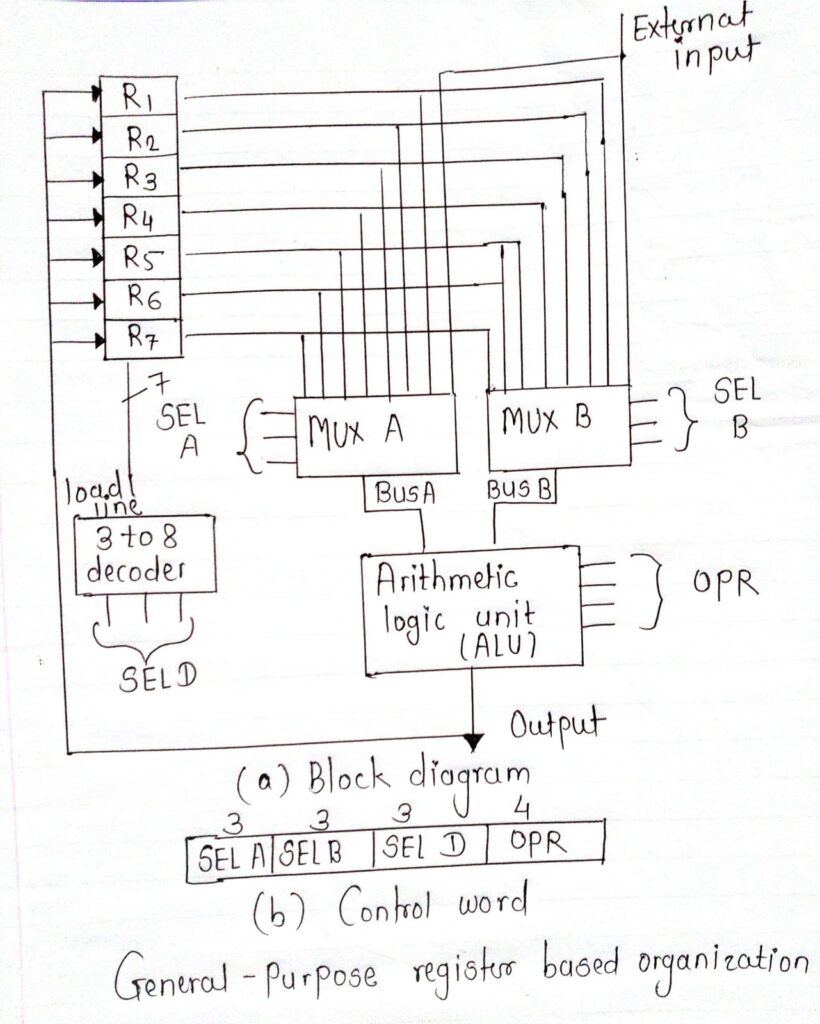 External
input
R1
R2
R3
R4
R5
R6
R7
7
SEL
A
MUX A
MUX B
SEL
B
load
line
BUSA
BUSB
3 to 8
decoder
Arithmetic
logic unit
(ALU)
OPR
SELD
Output
(a) Block diagram
3 3 3 4
SEL A SELB SEL D OPR
(b) Control word
General-Purpose register based organization